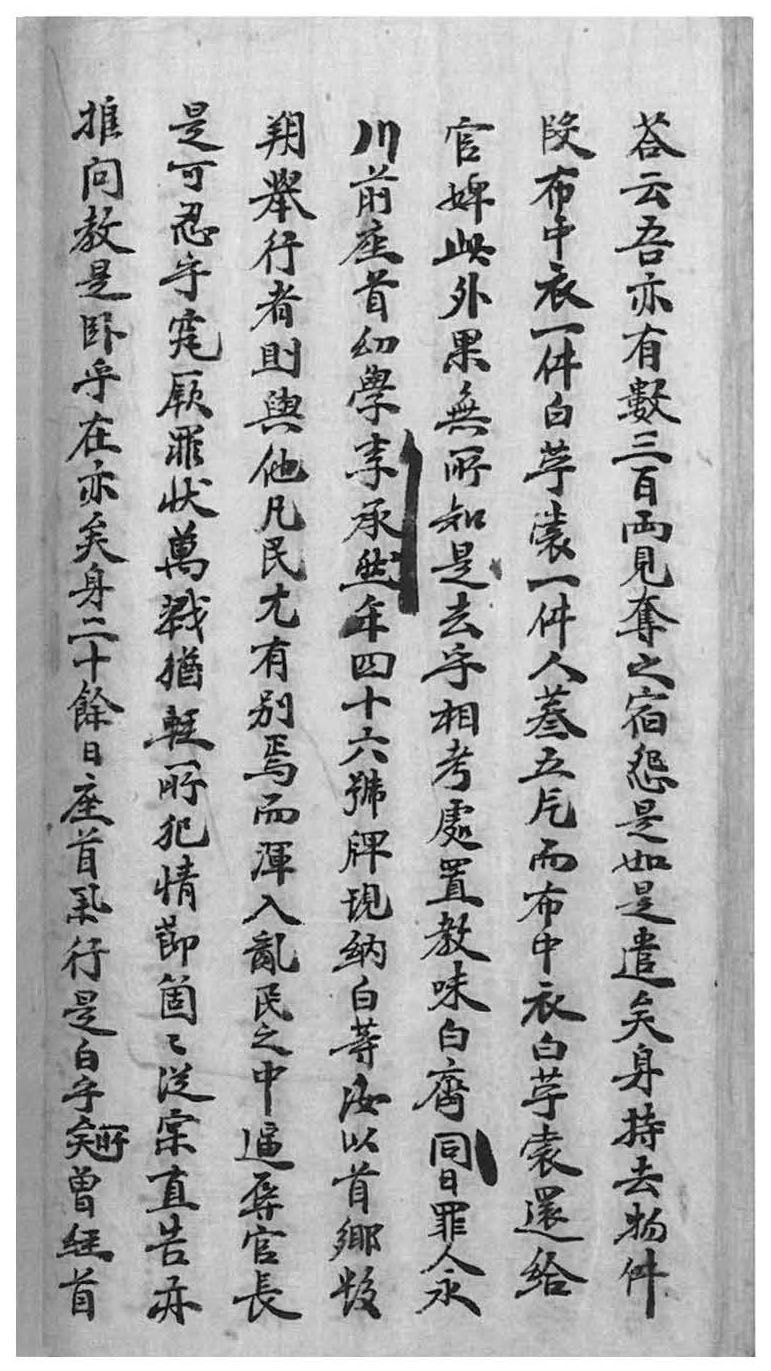 答云吾亦有數三百両見奪之宿怨是如是遣矣身持去物件
段布中衣一件白苧裳一件人蔘五片而布中衣白苧裳還給
官婢此外果無所知是去乎相考處置教味白齊同日罪人永
川前座首幼學李承㷡年四十六號牌現納白等汝以首鄉
朔舉行者則與他凡民尤有別焉而渾入亂民之中逼辱官長
是可忍乎究厥罪狀萬戮猶輕所犯情節箇〻從實直告亦
推問教是卧乎在亦矣身二十餘日座首行是白乎所矣曾經首